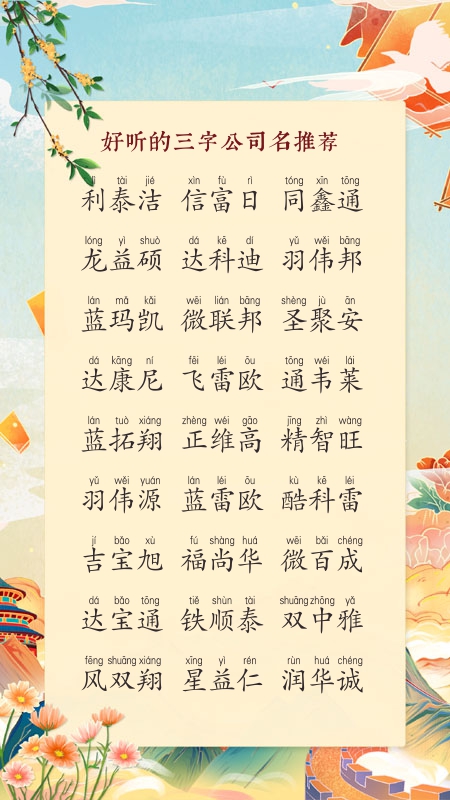 好听的三字公司名推荐
tài jié xìn fù rì tóng xīn tōng
利泰洁 信富日 同鑫通
lóng yì shuò dá kē dí yǔ wěi bāng
龙益硕 达科迪 羽伟邦
lán mǎ kǎi wēi lián bāng shèng jù ān
蓝玛凯 微联邦 圣聚安
dá kāng ní fēi léi ōu tōng wéi lái
达康尼 飞雷欧 通韦莱
lán tuò xiáng zhèng wéi gāo jīng zhì wàng
蓝拓翔 正维高 精智旺
yǔ wěi yuán lán léi ōu kù kē léi
羽伟源 蓝雷欧 酷科雷
jí bǎo xù fú shàng huá wēi bǎi chéng
吉宝旭 福尚华 微百成
dá bǎo tōng tiě shùn tài shuāng zhōng yǎ
达宝通 铁顺泰 双中雅
fēng shuāng xiáng xīng yì rén rùn huá chéng
风双翔 星益仁 润华诚